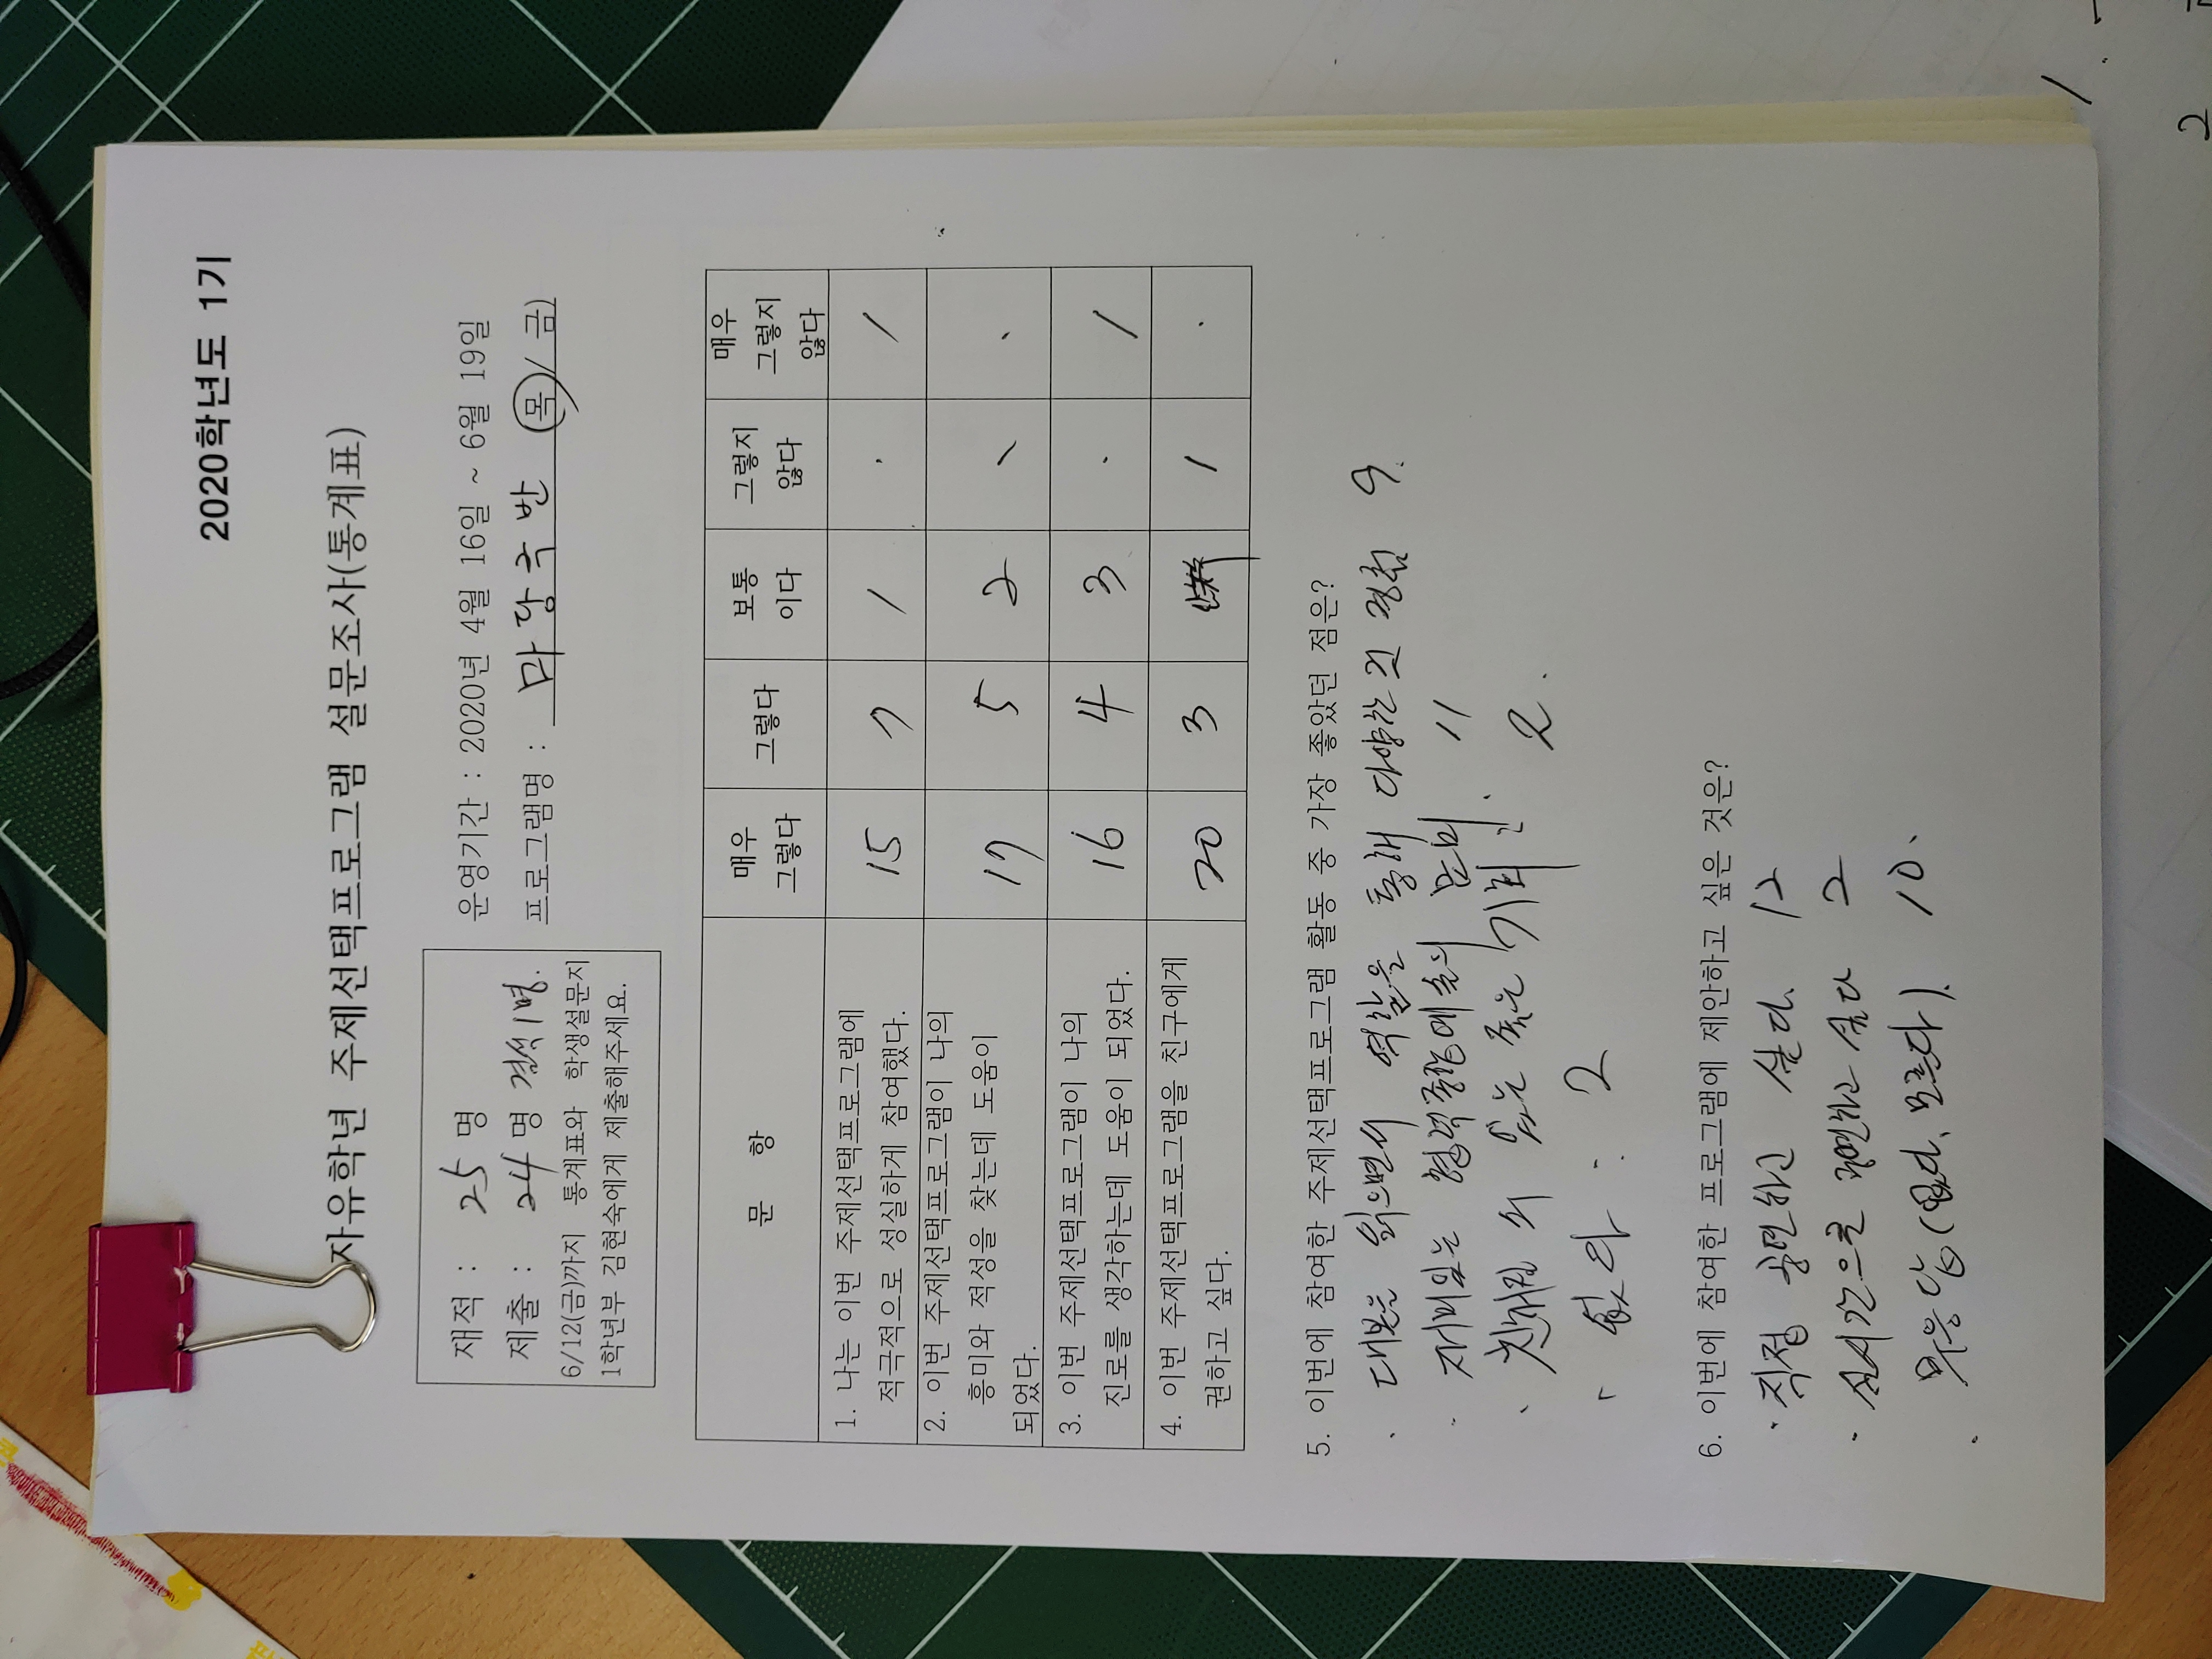 2020학년도 1기
자유학년 주제선택프로그램 설문조사(통계표)
재적 : 25 명
제출 : 24 명 결석 1명.
6/12(금)까지 통계표와 학생설문지
1학년부 김현숙에게 제출해주세요.
운영기간 : 2020년 4월 16일 ~ 6월 19일
프로그램명 : 마당극반 (목/ 금)
문 항 매우 그렇다 그렇다 보통 이다 그렇지 않다 매우 그렇지 않다
1. 나는 이번 주제선택프로그램에
적극적으로 성실하게 참여했다.
15 7 1 · 1
2. 이번 주제선택프로그램이 나의
흥미와 적성을 찾는데 도움이
되었다.
17 5 2 \ ·
3. 이번 주제선택프로그램이 나의
진로를 생각하는데 도움이 되었다.
16 4 3 · 1
4. 이번 주제선택프로그램을 친구에게
권하고 싶다.
20 3 1 ·
5. 이번에 참여한 주제선택프로그램 활동 중 가장 좋았던 점은?
· 대본을 읽으면서 역할을 통해 다양한 경험 9.
· 재미있는 협력종합예술의 준비. 11
· 친해질 수 있는 좋은 기회 2.
· 없다 : 2
6. 이번에 참여한 프로그램에 제안하고 싶은 것은?
· 직접 공연하고 싶다. 12
· 실시간으로 공연하고 싶다 2
· 무응답 (없다. 모르다). 10.